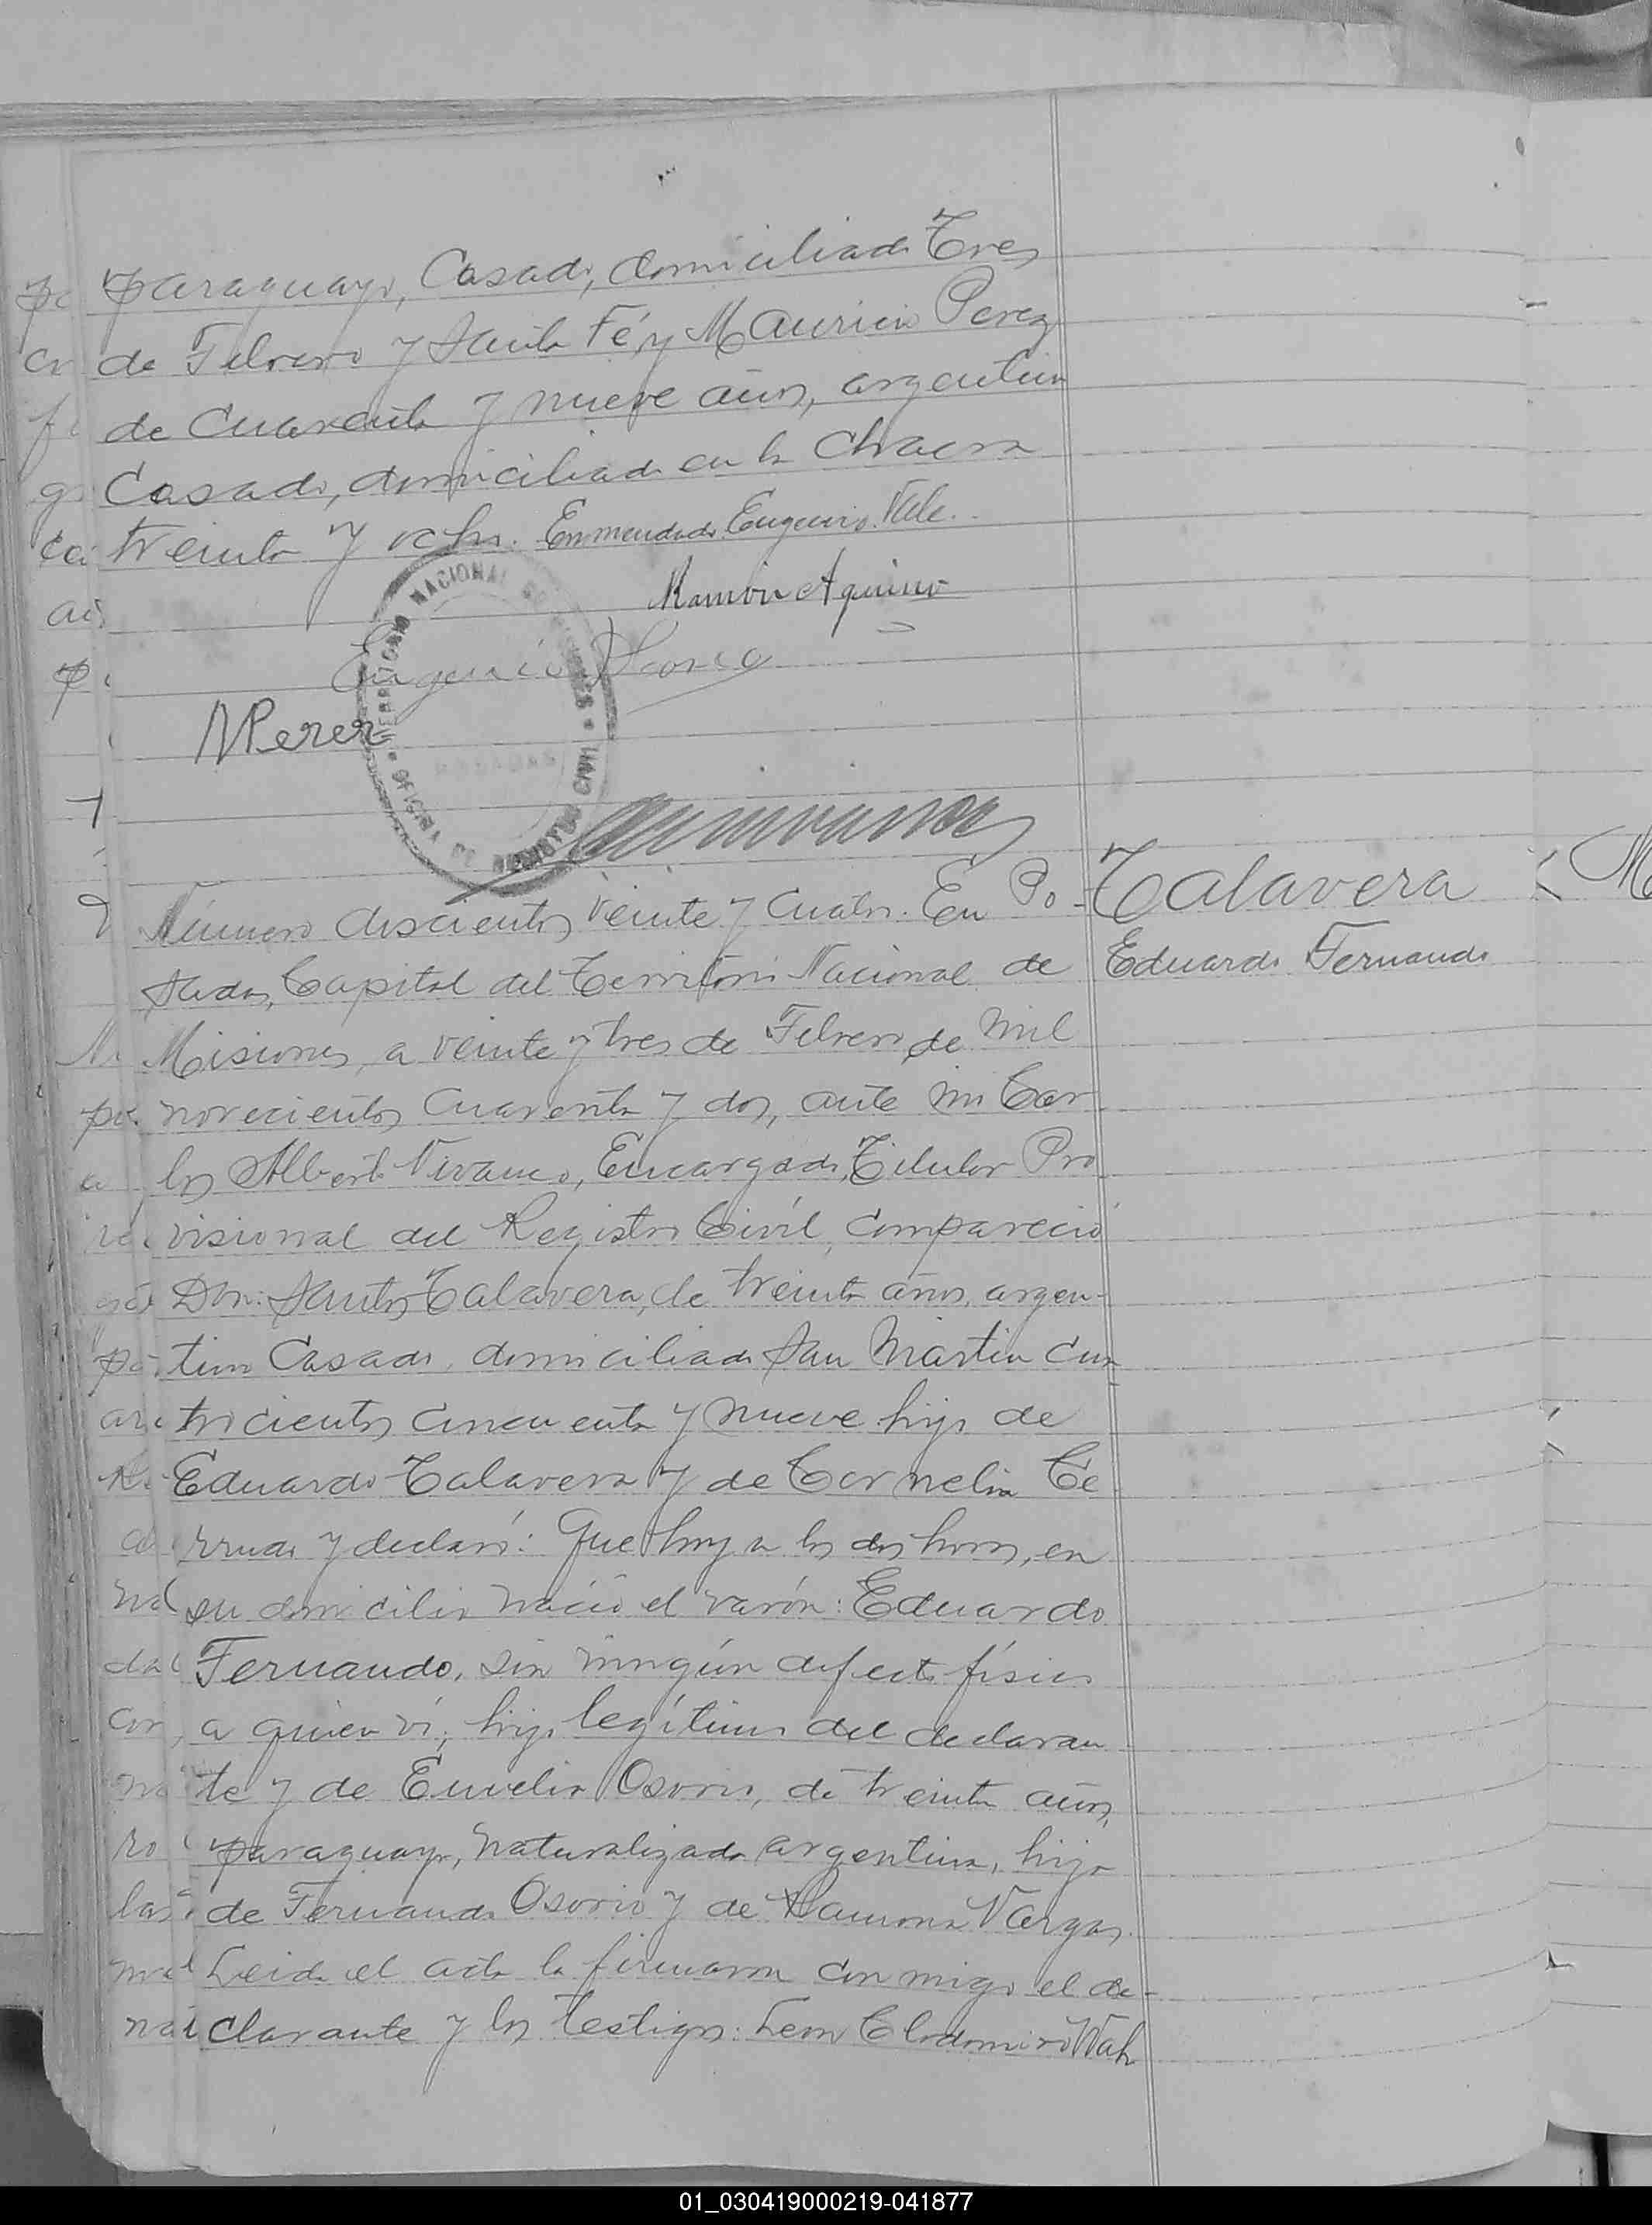 paraguayo, Casado, domiciliado Tres
de Febrero y Santa Fé, y Mauricio Perez
de cuarenta y nueve años, argentino
Casado, domiciliado en la Chacra
treinta y ocho. Enmendado Eugenio. Vale.
Ramón Aquino
Eugenio
MPerez
Número doscientos veinte y cuatro. En Po-
sadas, Capital del Territorio Nacional de
Misiones, a veinte y tres de Febrero de mil
novecientos cuarenta y dos, ante mi Car
los Alberto Vivanco, Encargado Titular Pro
visional del Registro Civil, compareció
Don: Santos Talavera, de treinta años, argen-
tino Casado, domiciliado San Martin cua
trocientos cincuenta y nueve hijo de
Eduardo Talavera y de Cornelia
y declaró: Que hoy a las dos horas, en
su domicilio nació el varón: Eduardo
Fernando, sin ningún defecto físico
a quien ví, hijo legítimo del declaran
te y de Osorio, de treinta años,
paraguaya, naturalizada argentina, hija
de Fernando Osorio y de Ramona Vargas.
Leida el acta la firmaron conmigo el de-
clarante y los testigos: Leon Clodomiro
Talavera
Eduardo Fernando